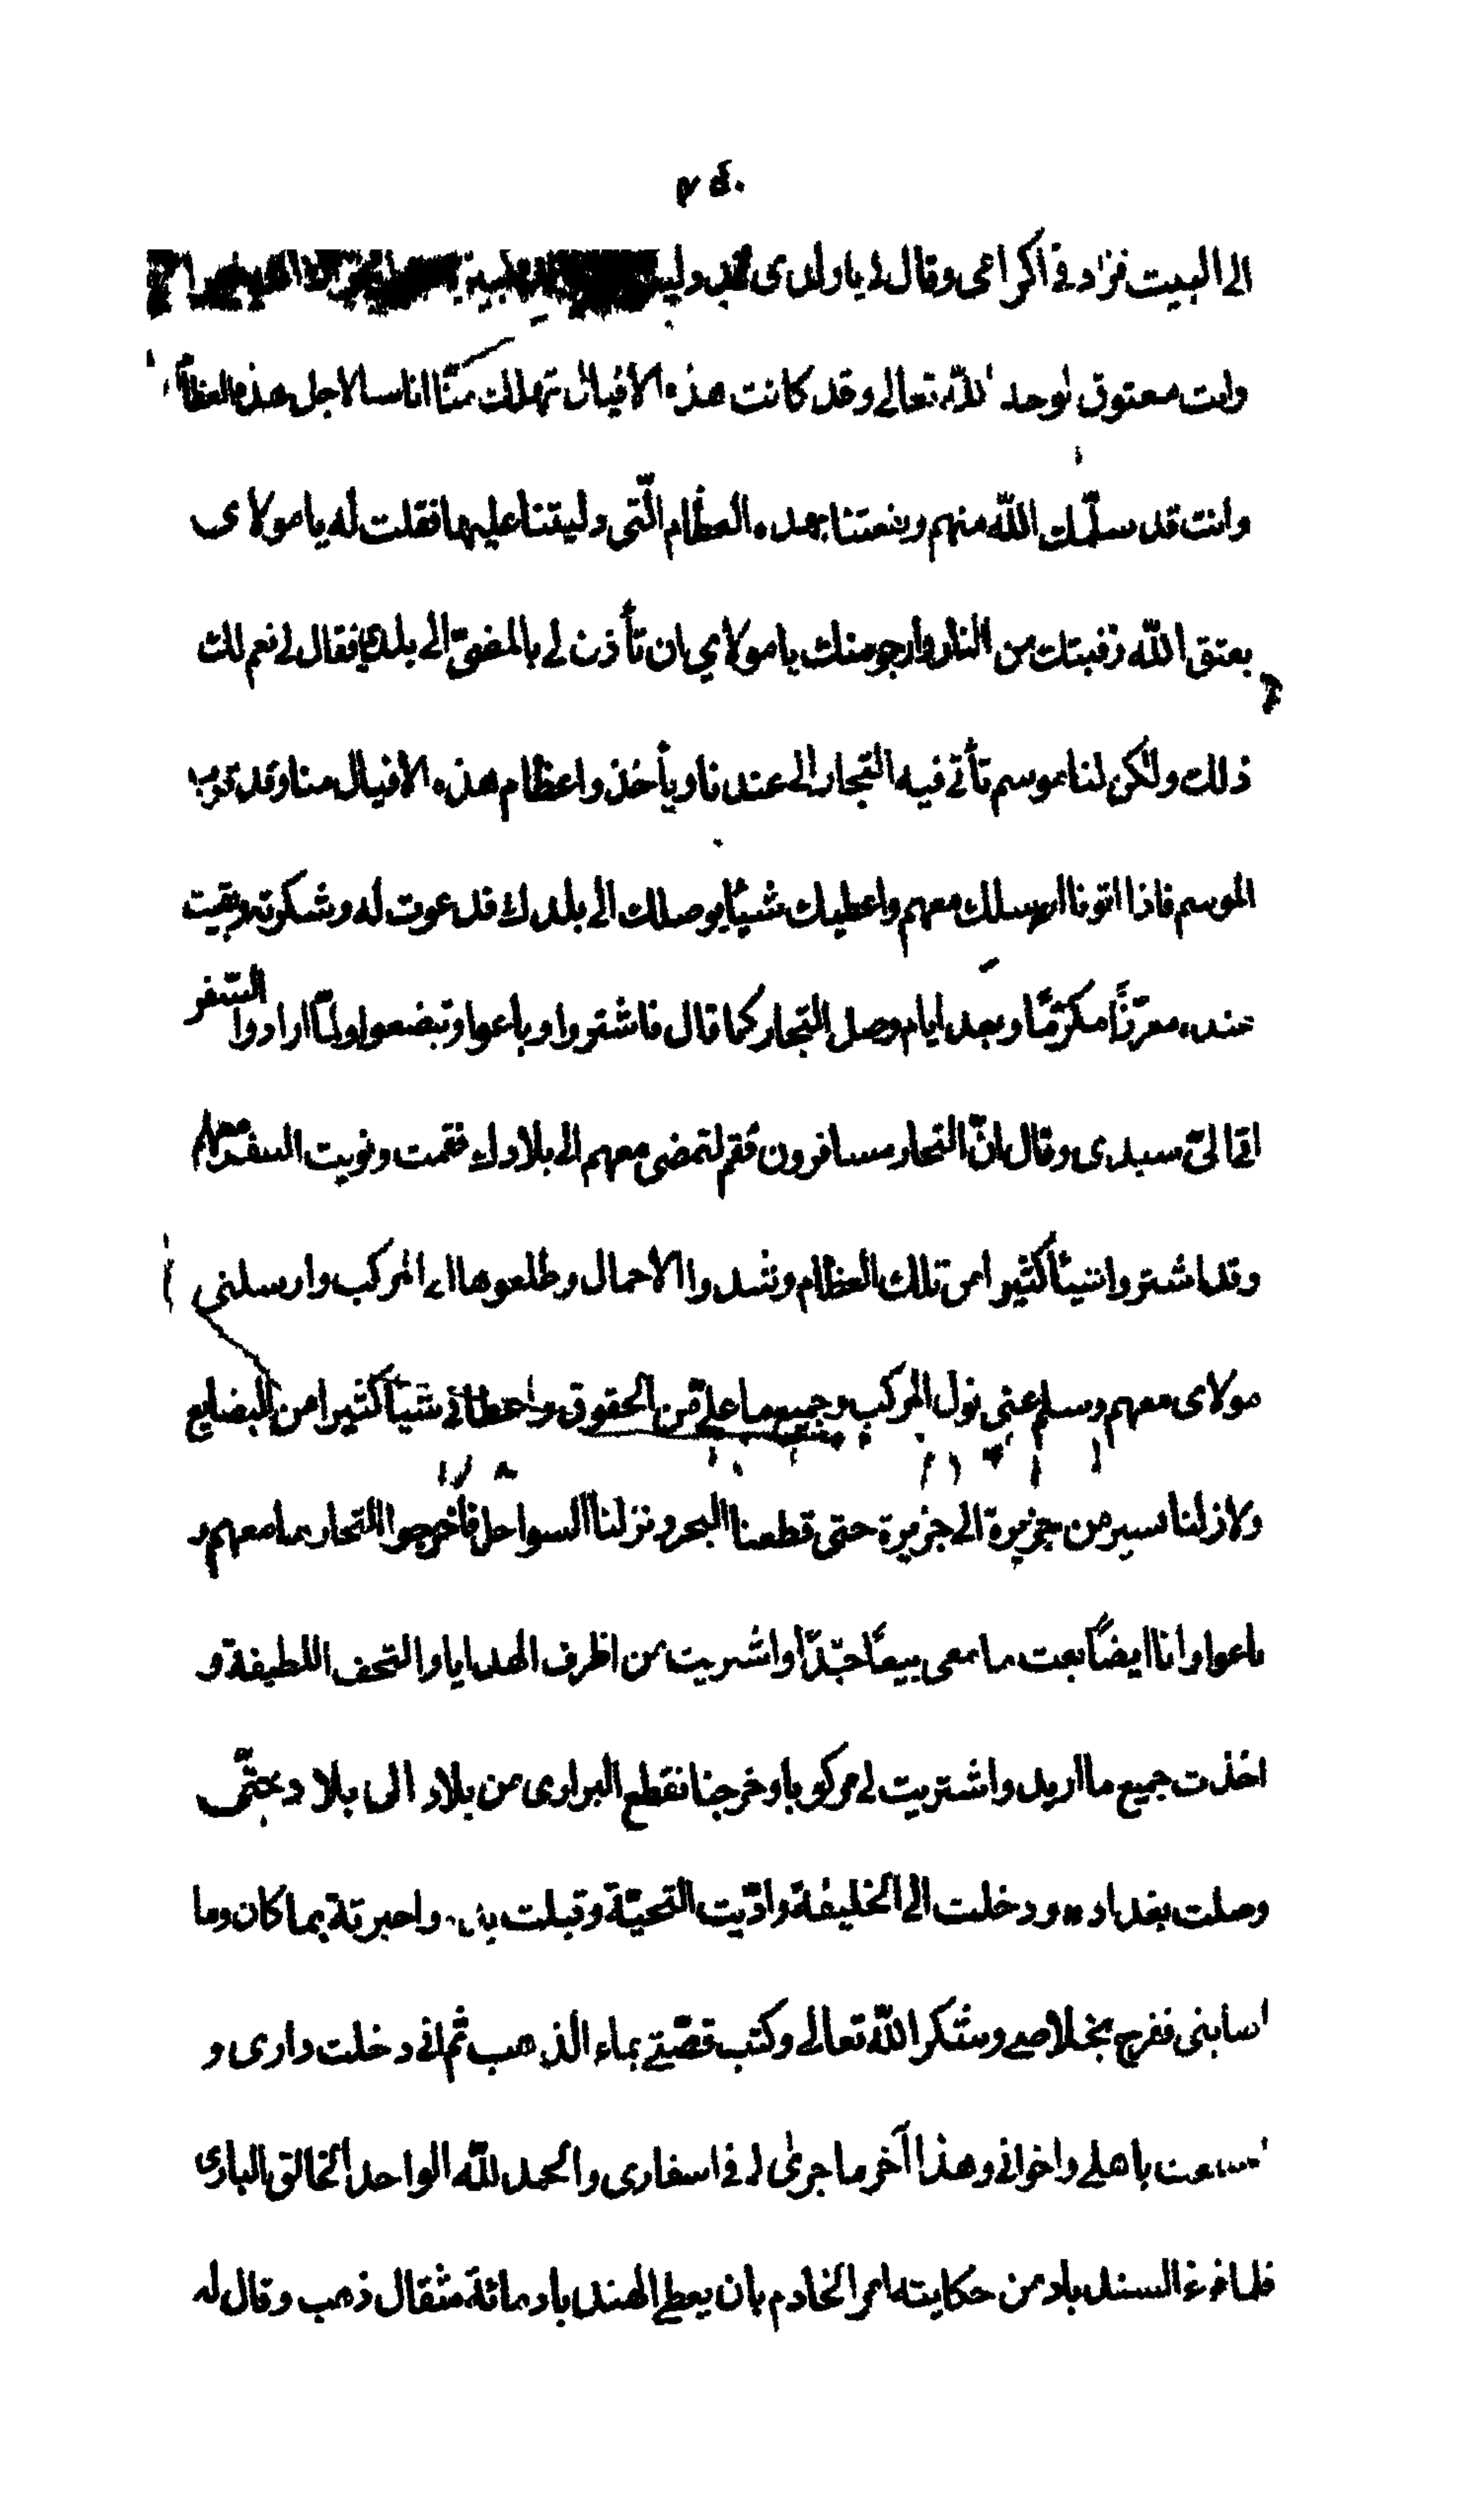 الى البيت فزاد في اكرامى وقال لى يا ولدى
وانت معتوق لوجه الله تعالى وقد كانت هذه الافيال تهلك منّا اناسا لاجل هذه العظام
وانت قد سلّمك الله منهم ونفعتنا بهذه العظام الّتى وليتنا عليها فقلت له يا مولاى
بعتق الله رقبتك من النار وارجو منك يا مولاي ان تأذن لي بالمضىّ الى بلدي فقال لى نعم لك
ذلك ولكن لنا موسم تأتى فيه التجار الى عندنا ويأخذوا عظام هذه الافيال منا وقد قرب
الموسم فاذا اتونا ارسلك معهم واعطيك شيئًا يوصلك الى بلدك فدعوت له وشكرته وبقيت
عنده معزّزًا مكرّمًا وبعد ايام وصل التجار كما قال فاشتروا وباعوا وتبضعوا ولمّا ارادوا السّفر
اتى الىّ سيدى وقال انّ التجار مسافرون فقم لتمضى معهم الى بلادك فقمت ونويت السفر
وقد اشتروا شيئًا كثيرا من تلك العظام وشدوا الاحمال وطلعوها الى المركب وارسلنى
مولاى معهم وسلم عنى نول المركب وجميع ما علىّ من الحقوق واعطانى شيئًا كثيرا من البضايع
ولا زلنا نسير من جزيرة الى جزيرة حتى قطعنا البحر ونزلنا السواحل فأخرجوا التجار ما معهم و
باعوا وانا ايضًا بعت ما معى بيعًا جيّدًا واشتريت من اظرف الهدايا والتحف اللطيفة و
اخذت جميع ما اريد واشتريت لى مركوبا وخرجنا نقطع البرارى من بلاد الى بلاد حتّى
وصلت بغداد ودخلت الى الخليفة وادّيت التحيّة وقبلت يده واخبرته بما كان وما
اصابنى ففرح بخلاصى وشكر الله تعالى وكتب قصّتى بماء الذهب ثم انى دخلت دارى و
اجتمعت باهلى واخوانى وهذا آخر ما جرى لى فى اسفارى والحمد لله الواحد الخالق البارى
فلما فرغ السندباد من حكايته امر الخادم بان يعطى الهندباد مائة مثقال ذهب وقال له